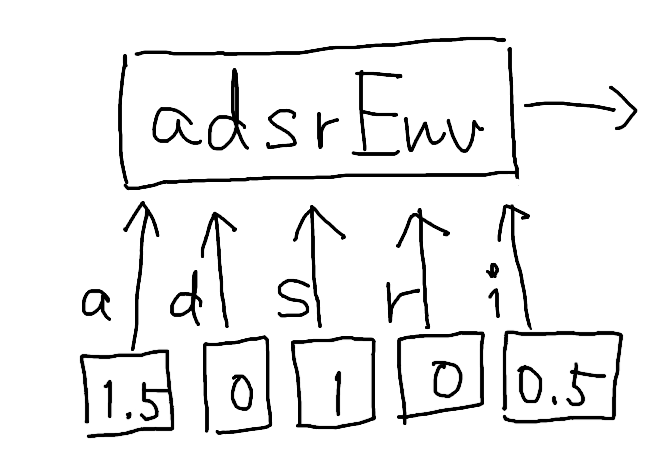 adsrEnv
a d s r i
1.5 0 1 0 0.5